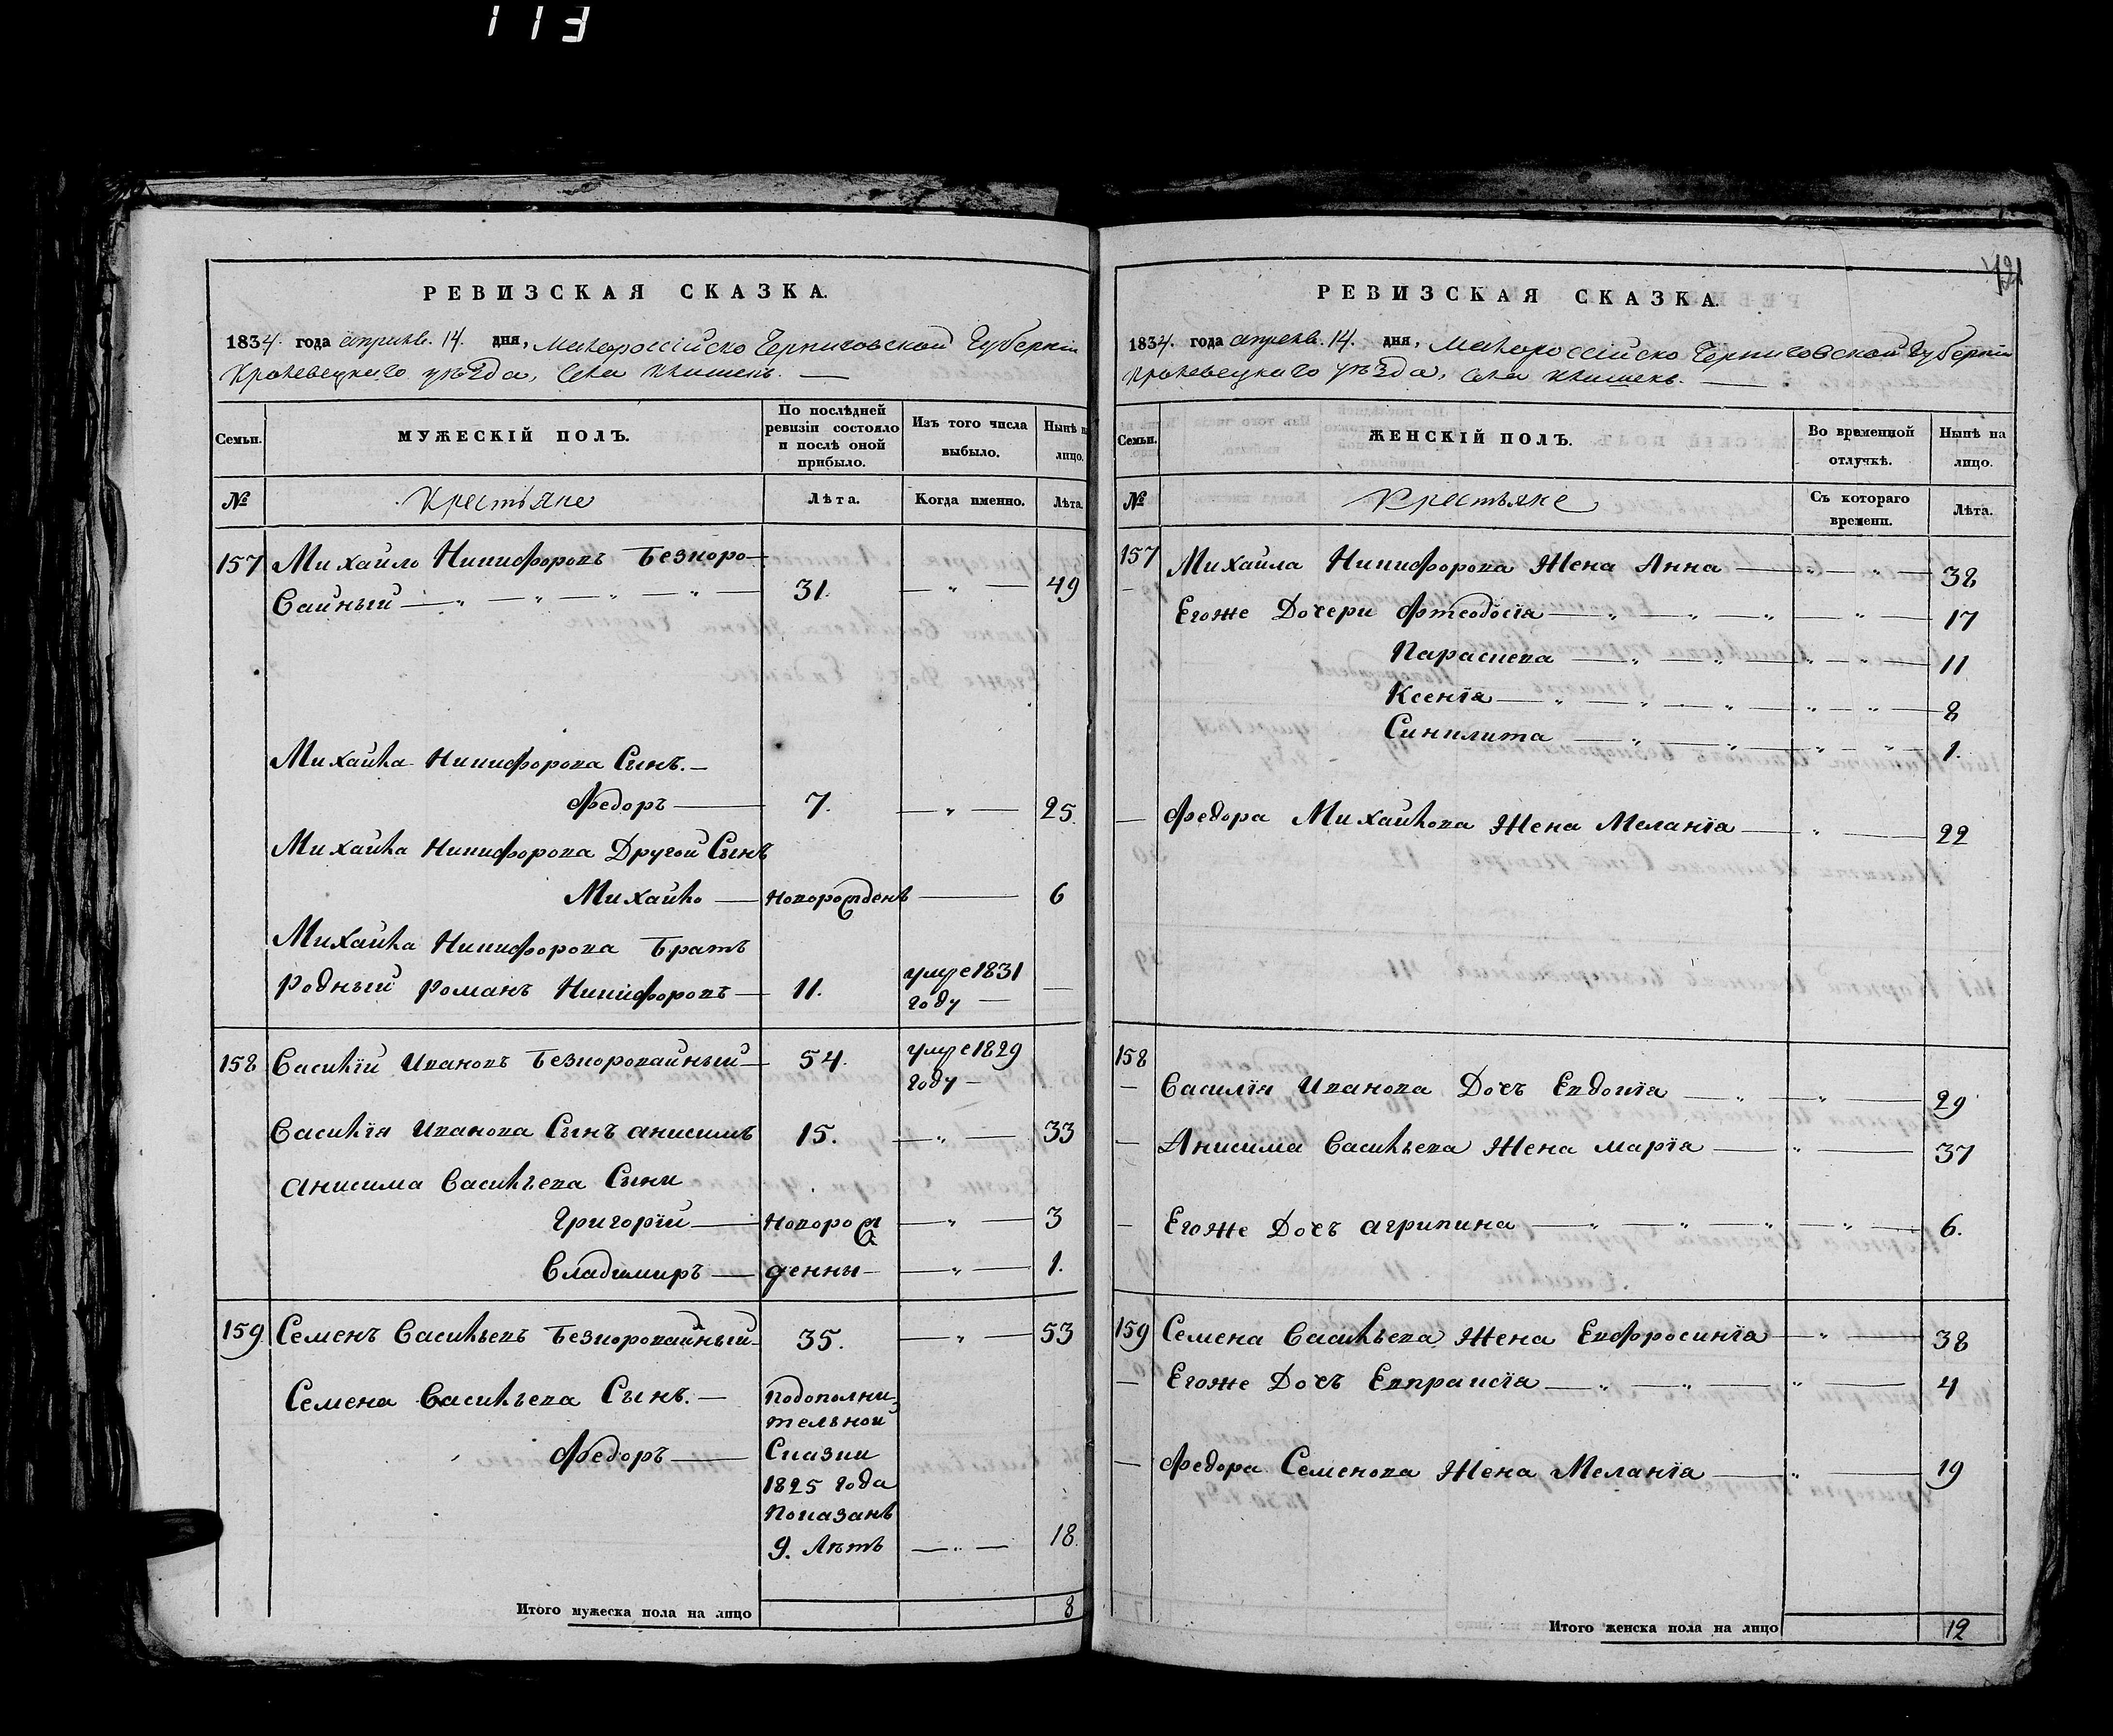 113
РЕВИЗСКАЯ СКАЗКА.
1834. года апрѣля. 14. дня, Малороссійско Черниговской Губерніи
Кролевецкаго уѣзда, Села
Семьи.
МУЖЕСКІЙ ПОЛЪ.
По послѣдней ревизіи состояло и послѣ оной прибыло.
Изъ того числа выбыло.
Нынѣ на лицо.
№
Крестьяне
Лѣта.
Когда именно.
Лѣта.
157 Михайло Никифоровъ Безкоро-
вайный — „ — „ — „ — „ — 31. — „ — 49
Михайла Никифорова Сынъ. —
Федоръ — 7. — „ — 25.
Михайла Никифорова Другой Сынъ
Михайло — новорожденъ — 6
Михайла Никифорова Братъ
Родный Романъ Никифоровъ — 11. умре 1831 году — —
158 Василій Ивановъ Безкоровайный — 54. умре 1829 году —
Василія Иванова Сынъ анисимъ 15. — „ — 33
анисима Васильева Сыни
Григорій — новорож — „ — 3
Владимиръ — денны — — „ — 1.
159 Семенъ Васильевъ Безкоровайный — 35. — „ — 53
Семена Васильева Сынъ. — подополни-
тельной
Федоръ — Сказки
1825 года
показанъ
9. лѣтъ — „ — 18.
Итого мужеска пола на лицо 8
РЕВИЗСКАЯ СКАЗКА.
1834. года апрѣля. 14. дня, Малороссійско Черниговской Губерніи
Кролевецкаго уѣзда, Села
Семьи.
ЖЕНСКІЙ ПОЛЪ.
Во временной отлучкѣ.
Нынѣ на лицо.
№
Крестьяне
Съ котораго времени.
Лѣта.
157 Михайла Никифорова Жена Анна — „ — „ — 38
Егоже Дочери Фтеодосія — „ — „ — „ — „ — 17
Параскева — „ — „ — „ — „ — 11
Ксенія — „ — „ — „ — „ — „ — 8
Синклита — „ — „ — „ — „ — 1.
— Федора Михайлова Жена Меланія — „ — 22
158
— Василія Иванова Дочъ Евдокія — „ — „ — 29
— Анисима Васильева Жена марія — „ — 37
— Егоже Дочъ агрипина — „ — „ — „ — „ — 6.
159 Семена Васильева Жена Евфросинія — „ — 38
— Егоже Дочъ Евпраксія — „ — „ — „ — 4
— Федора Семенова Жена Меланія — „ — 19
Итого женска пола на лицо 12